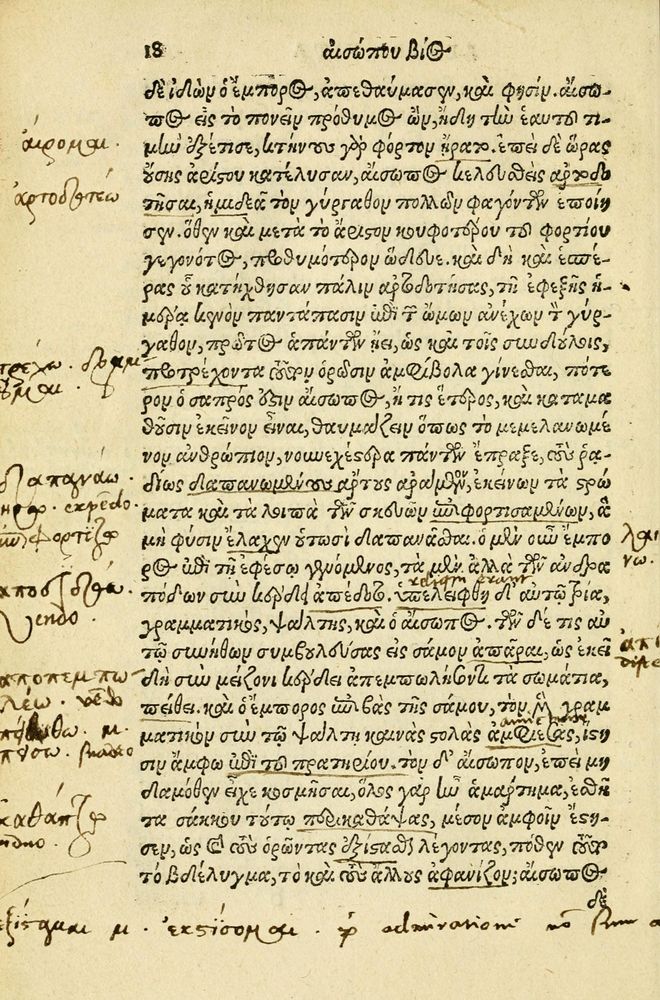 18 αἰσώπου βίος
δὲ ἰδὼν ὁ ἔμπορος, ἀπεθαύμασεν, καὶ φησίν. αἴσω-
πος εἰς τὸ πονεῖν πρόθυμος ὢν, ἤδη τὴν ἑαυτοῦ τι-
μὴν ἐξέτισε, κτήνους γὰρ φόρτον ἦρεν. ἐπεὶ δὲ ὥρας
οὔσης ἀρίστου κατέλυσαν, αἴσωπος κελευθεὶς ἀρτοδο
τῆσαι, ἡμιδεᾶ τὸν γύργαθον πολλῶν φαγόντων ἐποίη
σεν. ὅθεν καὶ μετὰ τὸ ἄριστον κουφοτέρου τοῦ φορτίου
γεγονότος, προθυμότερον ὥδευε. καὶ δὴ καὶ ἑσπέ-
ρας οὗ κατήχθησαν πάλιν ἀρτοδοτήσας, τῇ ἐφεξῆς ἡ-
μέρᾳ κενὸν παντάπασιν ἐπὶ τῶν ὤμων ἀνέχων τὸν γύρ-
γαθον, πρῶτος ἁπάντων ᾔει, ὡς καὶ τοῖς συνδούλοις,
προτρέχοντα τοῦτον ὁρῶσιν ἀμφίβολα γίνεσθαι, πότε
ρον ὁ σαπρός ἐστιν αἴσωπος, ἤ τις ἕτερος, καὶ καταμα
θοῦσιν ἐκεῖνον εἶναι, θαυμάζειν ὅπως τὸ μεμελανωμέ
νον ἀνθρώπιον, νουνεχέστερα πάντων ἔπραξε, τοὺς ῥα-
δίως δαπανωμένους ἄρτους ἀράμενον, ἐκείνων τὰ στρώ
ματα καὶ τὰ λοιπὰ τῶν σκευῶν ἐπιφορτισαμένων, ἃ
μὴ φύσιν ἔλαχεν οὑτωσὶ δαπανᾶσθαι. ὁ μὲν οὖν ἔμπο
ρος ἐπὶ τῇ ἐφέσῳ γενόμενος, τὰ μὲν ἄλλα τῶν ἀνδρα
πόδων σὺν κέρδει ἀπέδοτο. ὑπελείφθη δ' αὐτῷ τρία,
γραμματικὸς, ψάλτης, καὶ ὁ αἴσωπος. τῶν δέ τις αὐ
τῷ συνήθων συμβουλεύσας εἰς σάμον ἀπᾶραι, ὡς ἐκεῖ
δὴ σὺν μείζονι κέρδει ἀπεμπολήσοντι τὰ σωμάτια,
πείθει. καὶ ὁ ἔμπορος ἐπιβὰς τῆς σάμου, τὸν μὲν γραμ
ματικὸν σὺν τῷ ψάλτῃ καινὰς στολὰς ἀμφιέσας, ἵστη
σιν ἄμφω ἐπὶ τοῦ πρατηρίου. τὸν δ' αἴσωπον, ἐπεὶ μη
δαμόθεν εἶχε κοσμῆσαι, ὅλος γὰρ ἦν ἁμάρτημα, ἐσθῆ
τα σάκκου τούτῳ περικαθάψας, μέσον ἀμφοῖν ἔστη-
σεν, ὡς καὶ τοὺς ὁρῶντας ἐξίστασθαι λέγοντας, πόθεν τοῦτο
τὸ βδέλυγμα, τὸ καὶ τοὺς ἄλλους ἀφανίζον; αἴσωπος
δὲ
αἴρομαι.
ἀρτοδοτέω
δαπανάω.
expēdo.
Vendo.
ἐξίσταμαι
ἐκστήσομαι.
admiratione